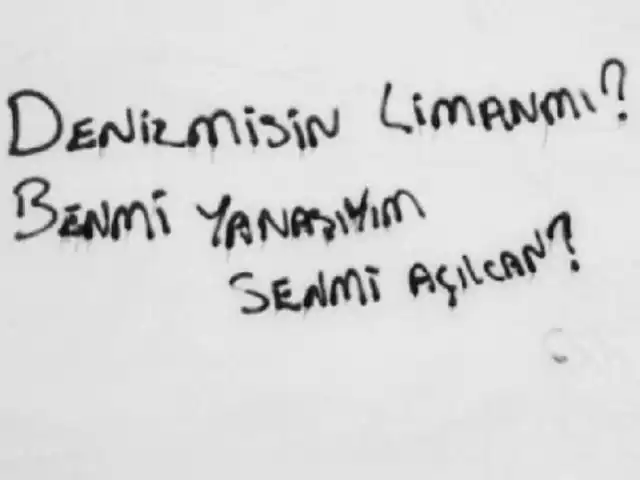 DENİZMİSİN LİMANMI?
BENMİ YANAŞIYIM
SENMİ AÇILCAN?